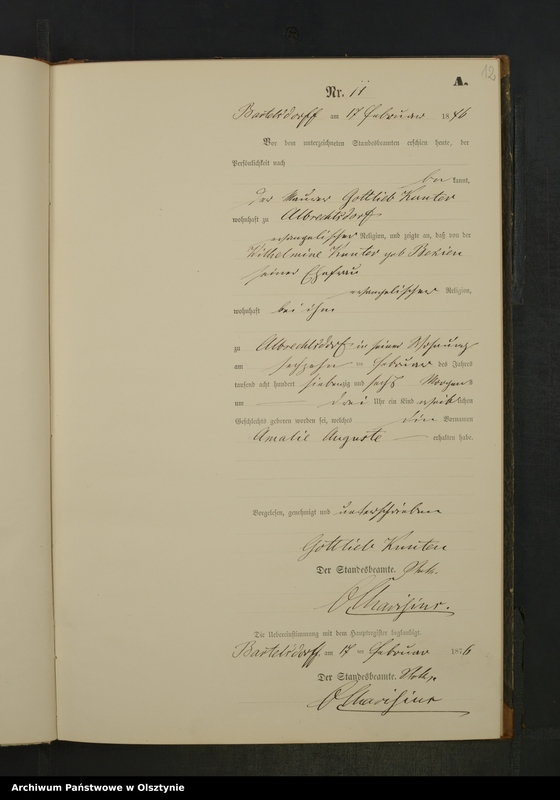 12
A.
Nr. 11
Bartelsdorff am 17 Februar 1876
Vor dem unterzeichneten Standesbeamten erschien heute, der
Persönlichkeit nach
be kannt,
der Maurer Gottlieb
wohnhaft zu Albrechtsdorf
evangelischer Religion, und zeigte an, daß von der
Wilhelmine geb
seiner Ehefrau
evangelischer Religion,
wohnhaft bei ihm
zu Albrechtsdorf in seiner Wohnung
am sechzehn Februar des Jahres
tausend acht hundert siebenzig und sechs Morgens
um drei Uhr ein Kind weiblichen
Geschlechts geboren worden sei, welches die Vornamen
Amalie Auguste erhalten habe.
Vorgelesen, genehmigt und unterschrieben
Gottlieb
Der Standesbeamte.
Die Uebereinstimmung mit dem Hauptregister beglaubigt.
Bartelsdorff am 17 Februar 1876
Der Standesbeamte.
Archiwum Państwowe w Olsztynie